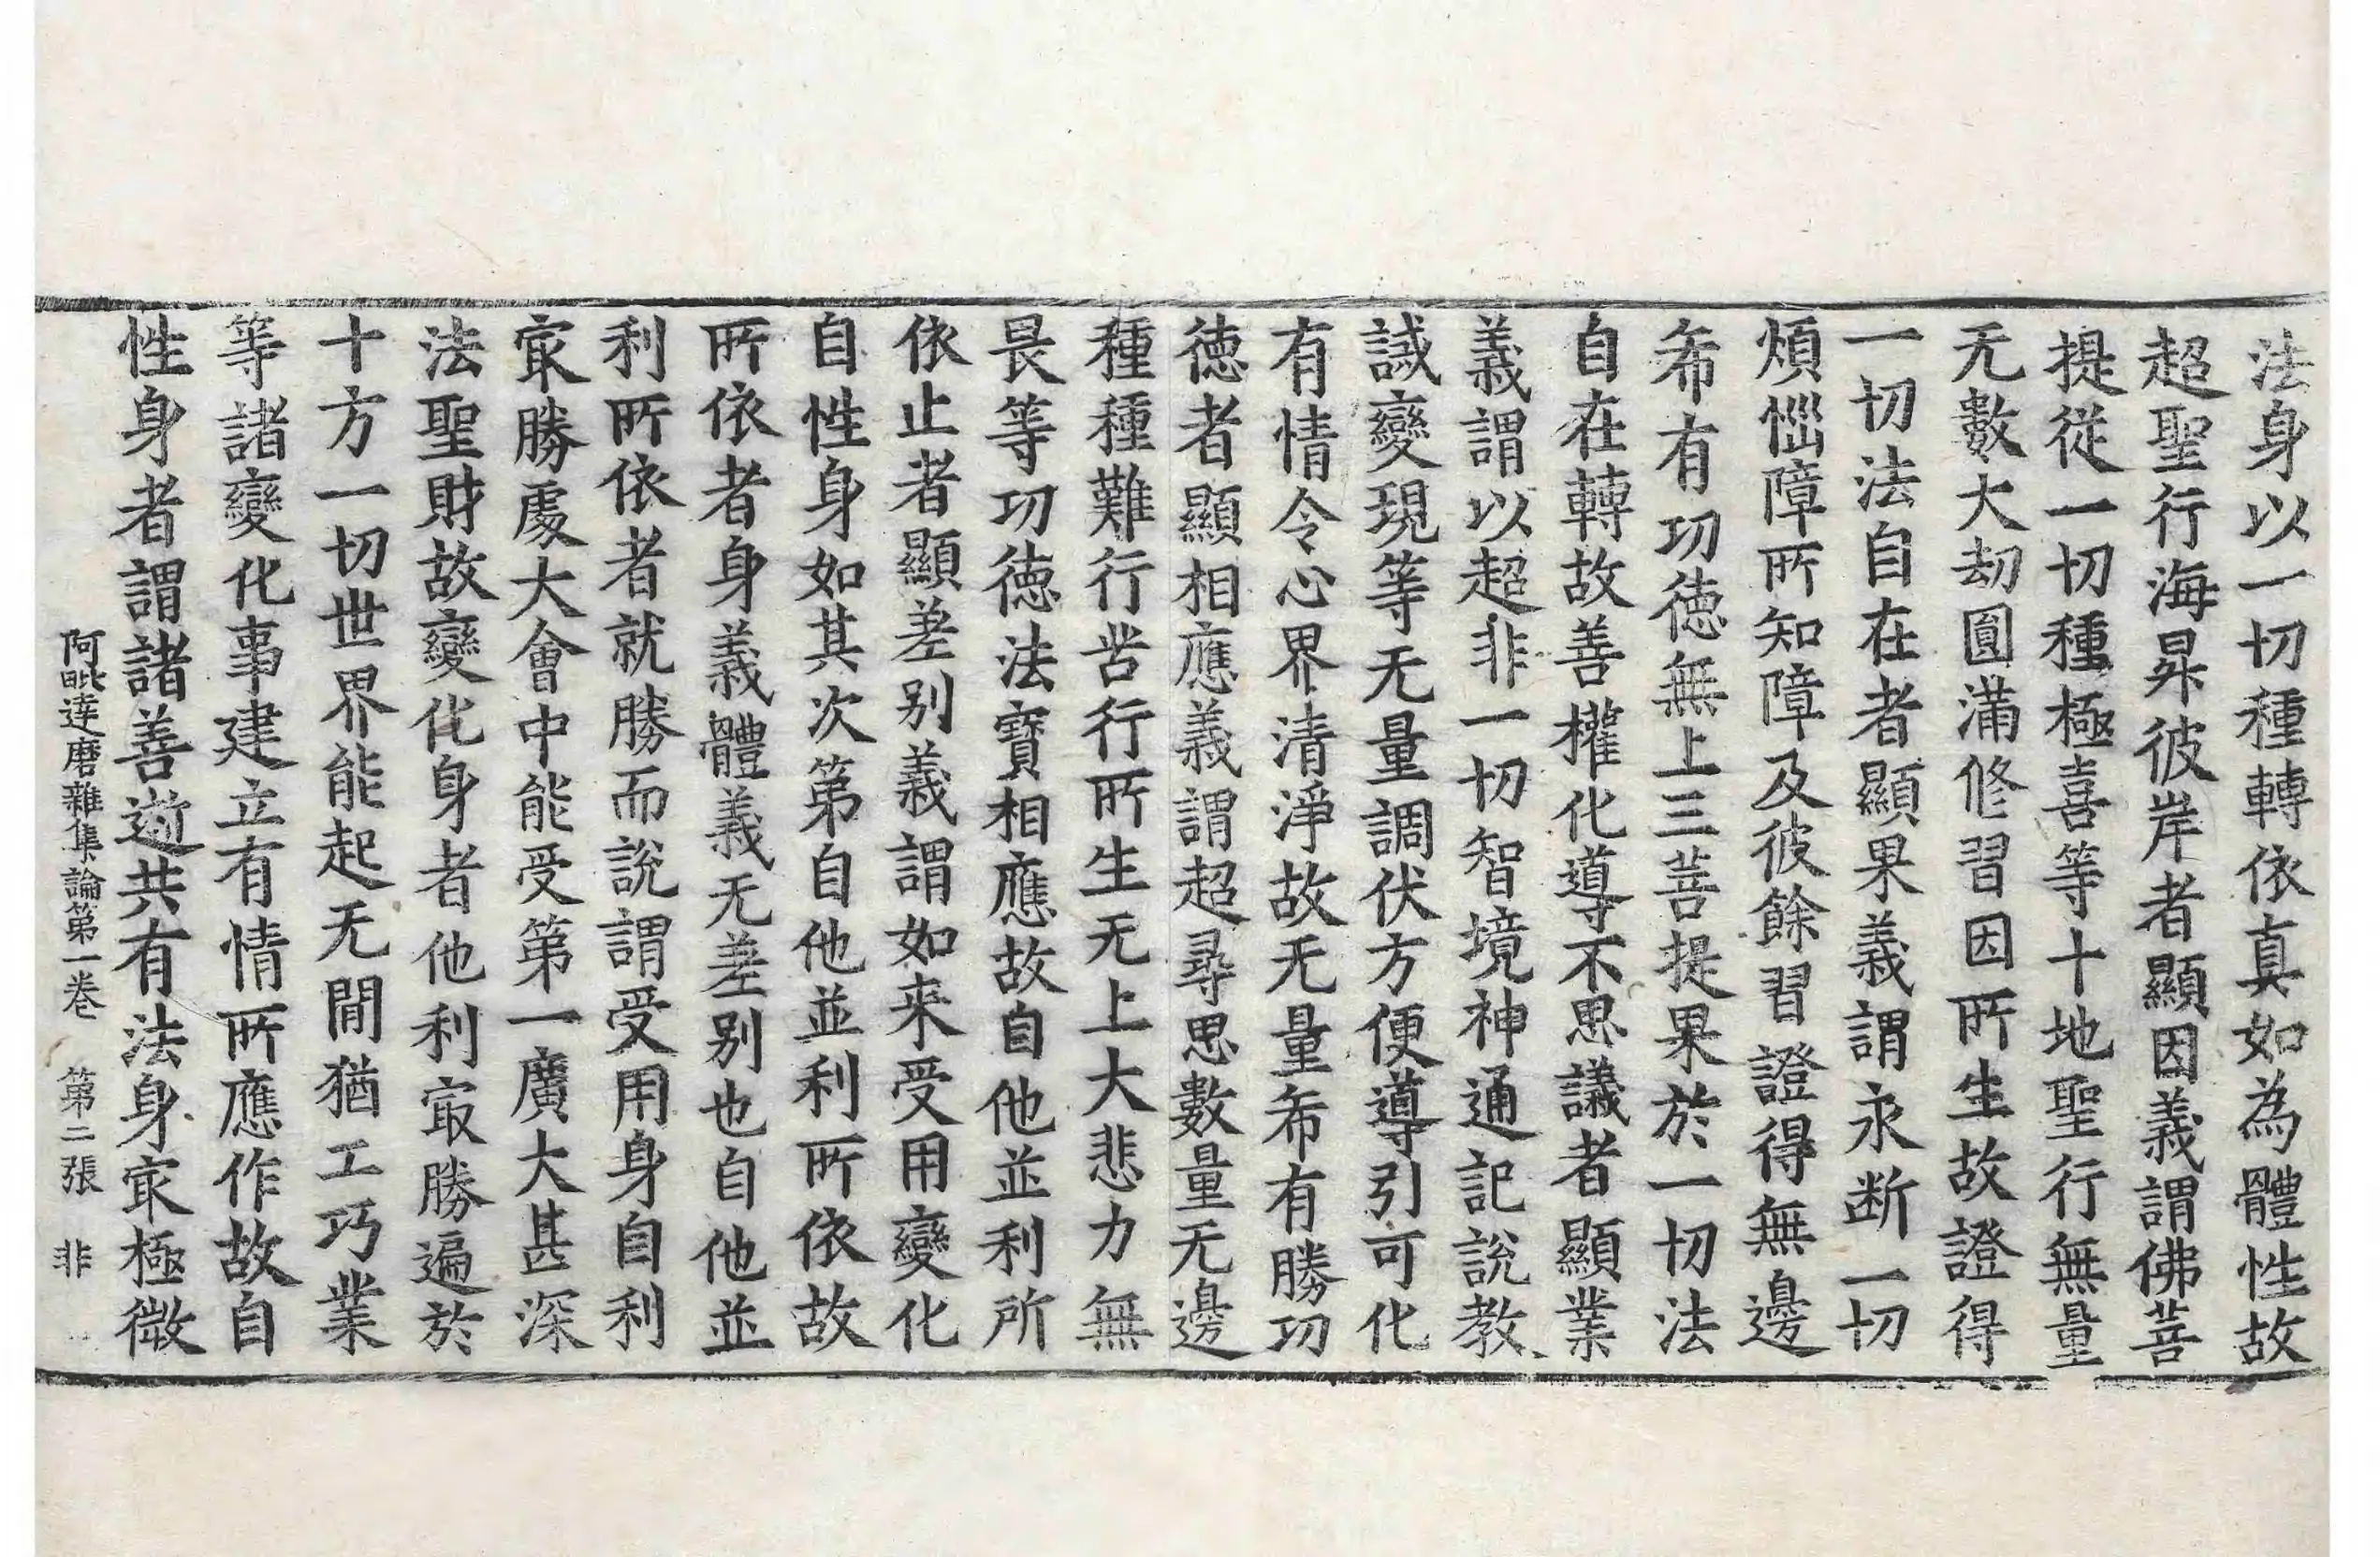 法身以一切種轉依真如為體性故
超聖行海昇彼岸者顯因義謂佛菩
提從一切種極喜等十地聖行無量
无數大劫圓滿修習因所生故證得
一切法自在者顯果義謂永断一切
煩惱障所知障及彼餘習證得無邊
希有功徳無上三菩提果於一切法
自在轉故善權化導不思議者顯業
義謂以超非一切智境神通記說教
誡變現等无量調伏方便導引可化
有情令心界清淨故无量希有勝功
徳者顯相應義謂超尋思數量无邊
種種難行苦行所生无上大悲力無
畏等功徳法寶相應故自他並利所
依止者顯差别義謂如来受用變化
自性身如其次第自他並利所依故
所依者身義體義无差别也自他並
利所依者就勝而說謂受用身自利
㝡勝處大會中能受第一廣大甚深
法聖財故變化身者他利㝡勝遍於
十方一切世界能起无間猶工巧業
等諸變化事建立有情所應作故自
性身者謂諸善逝共有法身㝡極微
阿毗達磨雜集論第一卷　第二張　非